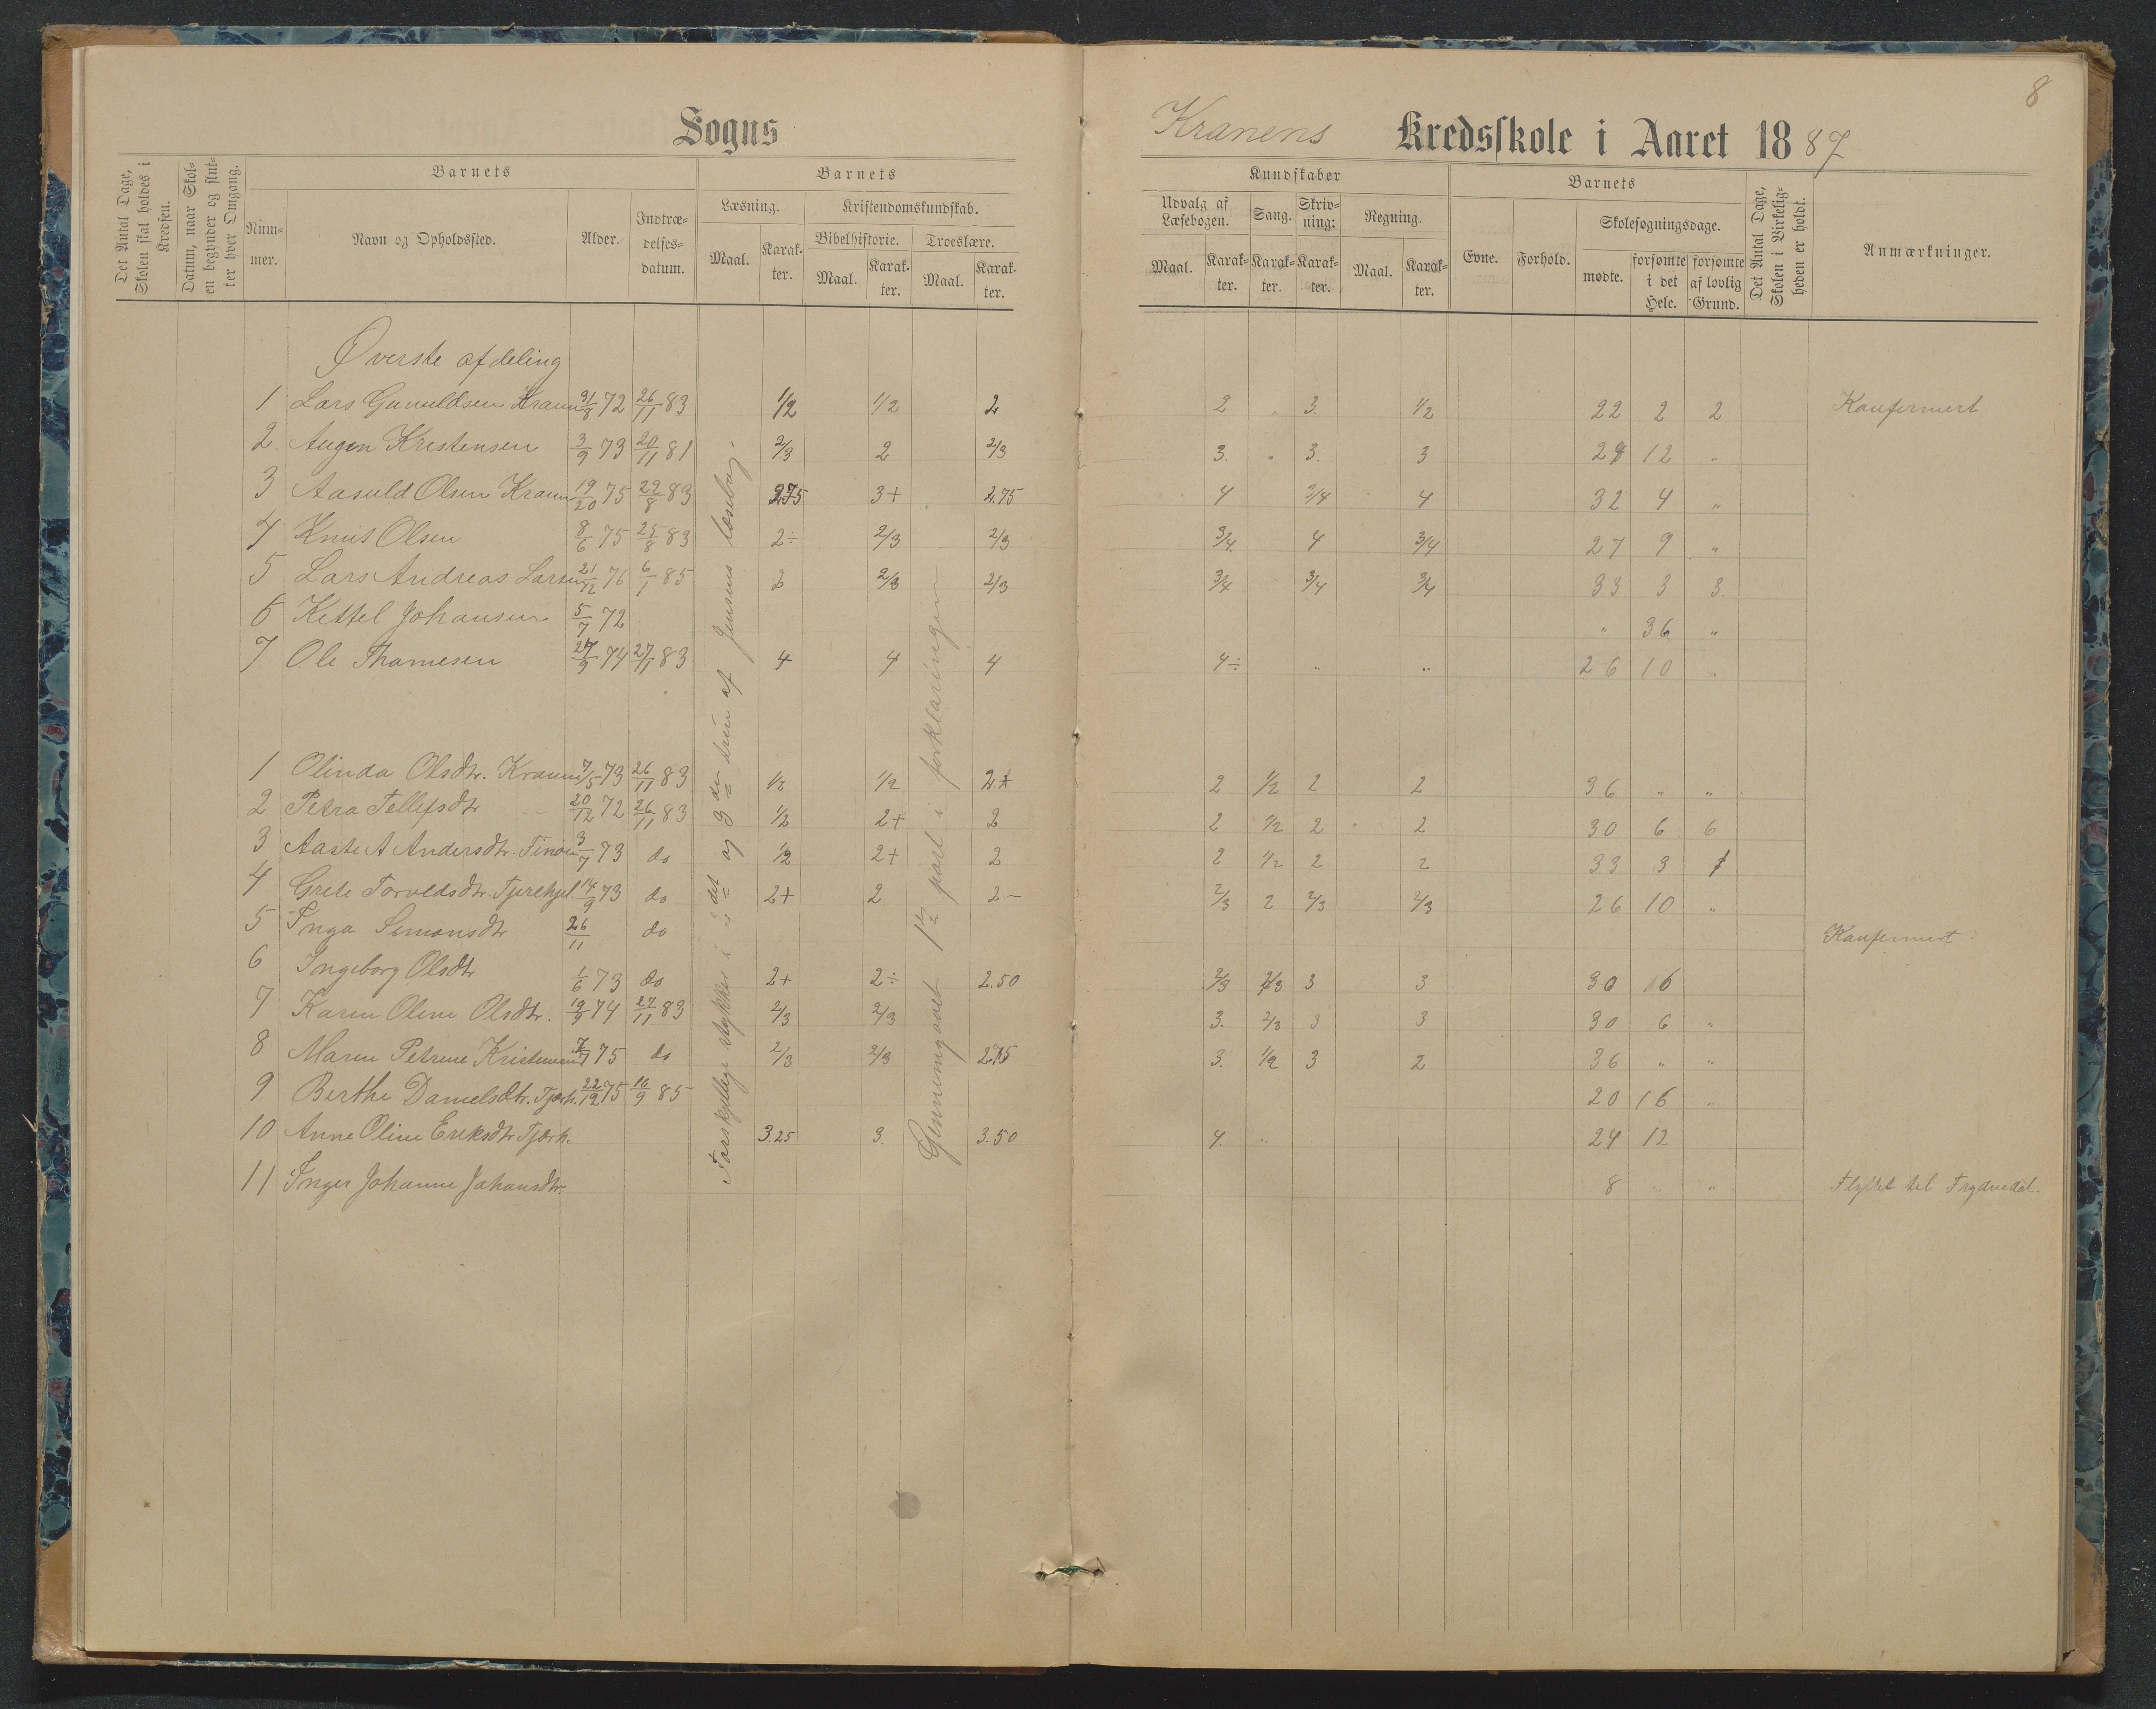 8
Sogns
Kranens Kredsskole i Aaret 1887
Det Antal Dage, Skolen skal holdes i Kredsen.
Datum, naar Skolen begynder og slutter hver Omgang.
Barnets
Barnets
Kundskaber
Barnets
Det Antal Dage, Skolen i Virkeligheden er holdt.
Anmærkninger.
Nummer.
Navn og Opholdssted.
Alder.
Indtrædelsesdatum.
Læsning.
Kristendomskundskab.
Udvalg af Læsebogen.
Sang.
Skrivning:
Regning.
Evne.
Forhold.
Skolesøgningsdage.
Bibelhistorie.
Troeslære.
Maal. Karakter. Maal. Karakter. Maal. Karakter.
Maal. Karakter. Karakter. Karakter. Maal. Karakter.
mødte. forsømte i det Hele. forsømte af lovlig Grund.
Øverste afdeling
1 Lars Gunuldsen Kranen 31/8 72 26/11 83 1/2 1/2 2 2 " 3. 1/2 22 2 2 Konfermert
2 Augen Kristensen 3/9 73 20/11 81 2/3 2 2/3 3. " 3. 3 28 12 "
3 Aasuld Olsen Kranen 19/20 75 22/8 83 2.75 3+ 2.75 4 3/4 4 32 4 "
4 Knut Olsen 8/6 75 25/8 83 2÷ 2/3 2/3 3/4 4 3/4 27 9 "
5 Lars Andreas Larsen 21/12 76 6/1 85 2 2/3 2/3 3/4 3/4 3/4 33 3 3.
6 Kettel Johansen 5/7 72 " 36 "
7 Ole Thomesen 27/9 74 27/11 83 4 4 4 4÷ " " 26 10 "
1 Olinda Olsdtr. Kranen 7/5 73 26/11 83 1/2 1/2 2+ 2 1/2 2 2 36 " "
2 Petra Tellefsdtr 20/12 72 26/11 83 1/2 2+ 2 2 1/2 2 2 30 6 6
3 Aaste A Andersdtr. 3/7 73 do 1/2 2+ 2 2 1/2 2 2 33 3
4 Grete Torveldsdtr. 14/9 73 do 2+ 2 2- 2/3 2 2/3 2/3 26 10 "
5 Inga Simonsdtr 26/11 do Konfermert
6 Ingeborg Olsdtr 1/6 73 do 2+ 2÷ 2.50 2/3 2/3 3 3 30 6
7 Karen Oline Olsdtr. 19/9 74 27/11 83 2/3 2/3 3. 2/3 3 3 30 6 "
8 Maren Petrine Kristensen 7/7 75 do 2/3 2/3 2.75 3. 1/2 3 2 36 " "
9 Berthe Danielsdtr. Tjørh. 22/12 75 16/9 85 20 16 "
10 Anne Oline Eriksdtr Tjørh. 3.25 3. 3.50 4. " 24 12
11 Inger Johanne Johansdtr. 8 " " Flyttet til Frydendal.
Forskjellige stykker i 2det og 3die trin af Jensens læsebog.
Gjennemgaaet 1ste part i forklaringen